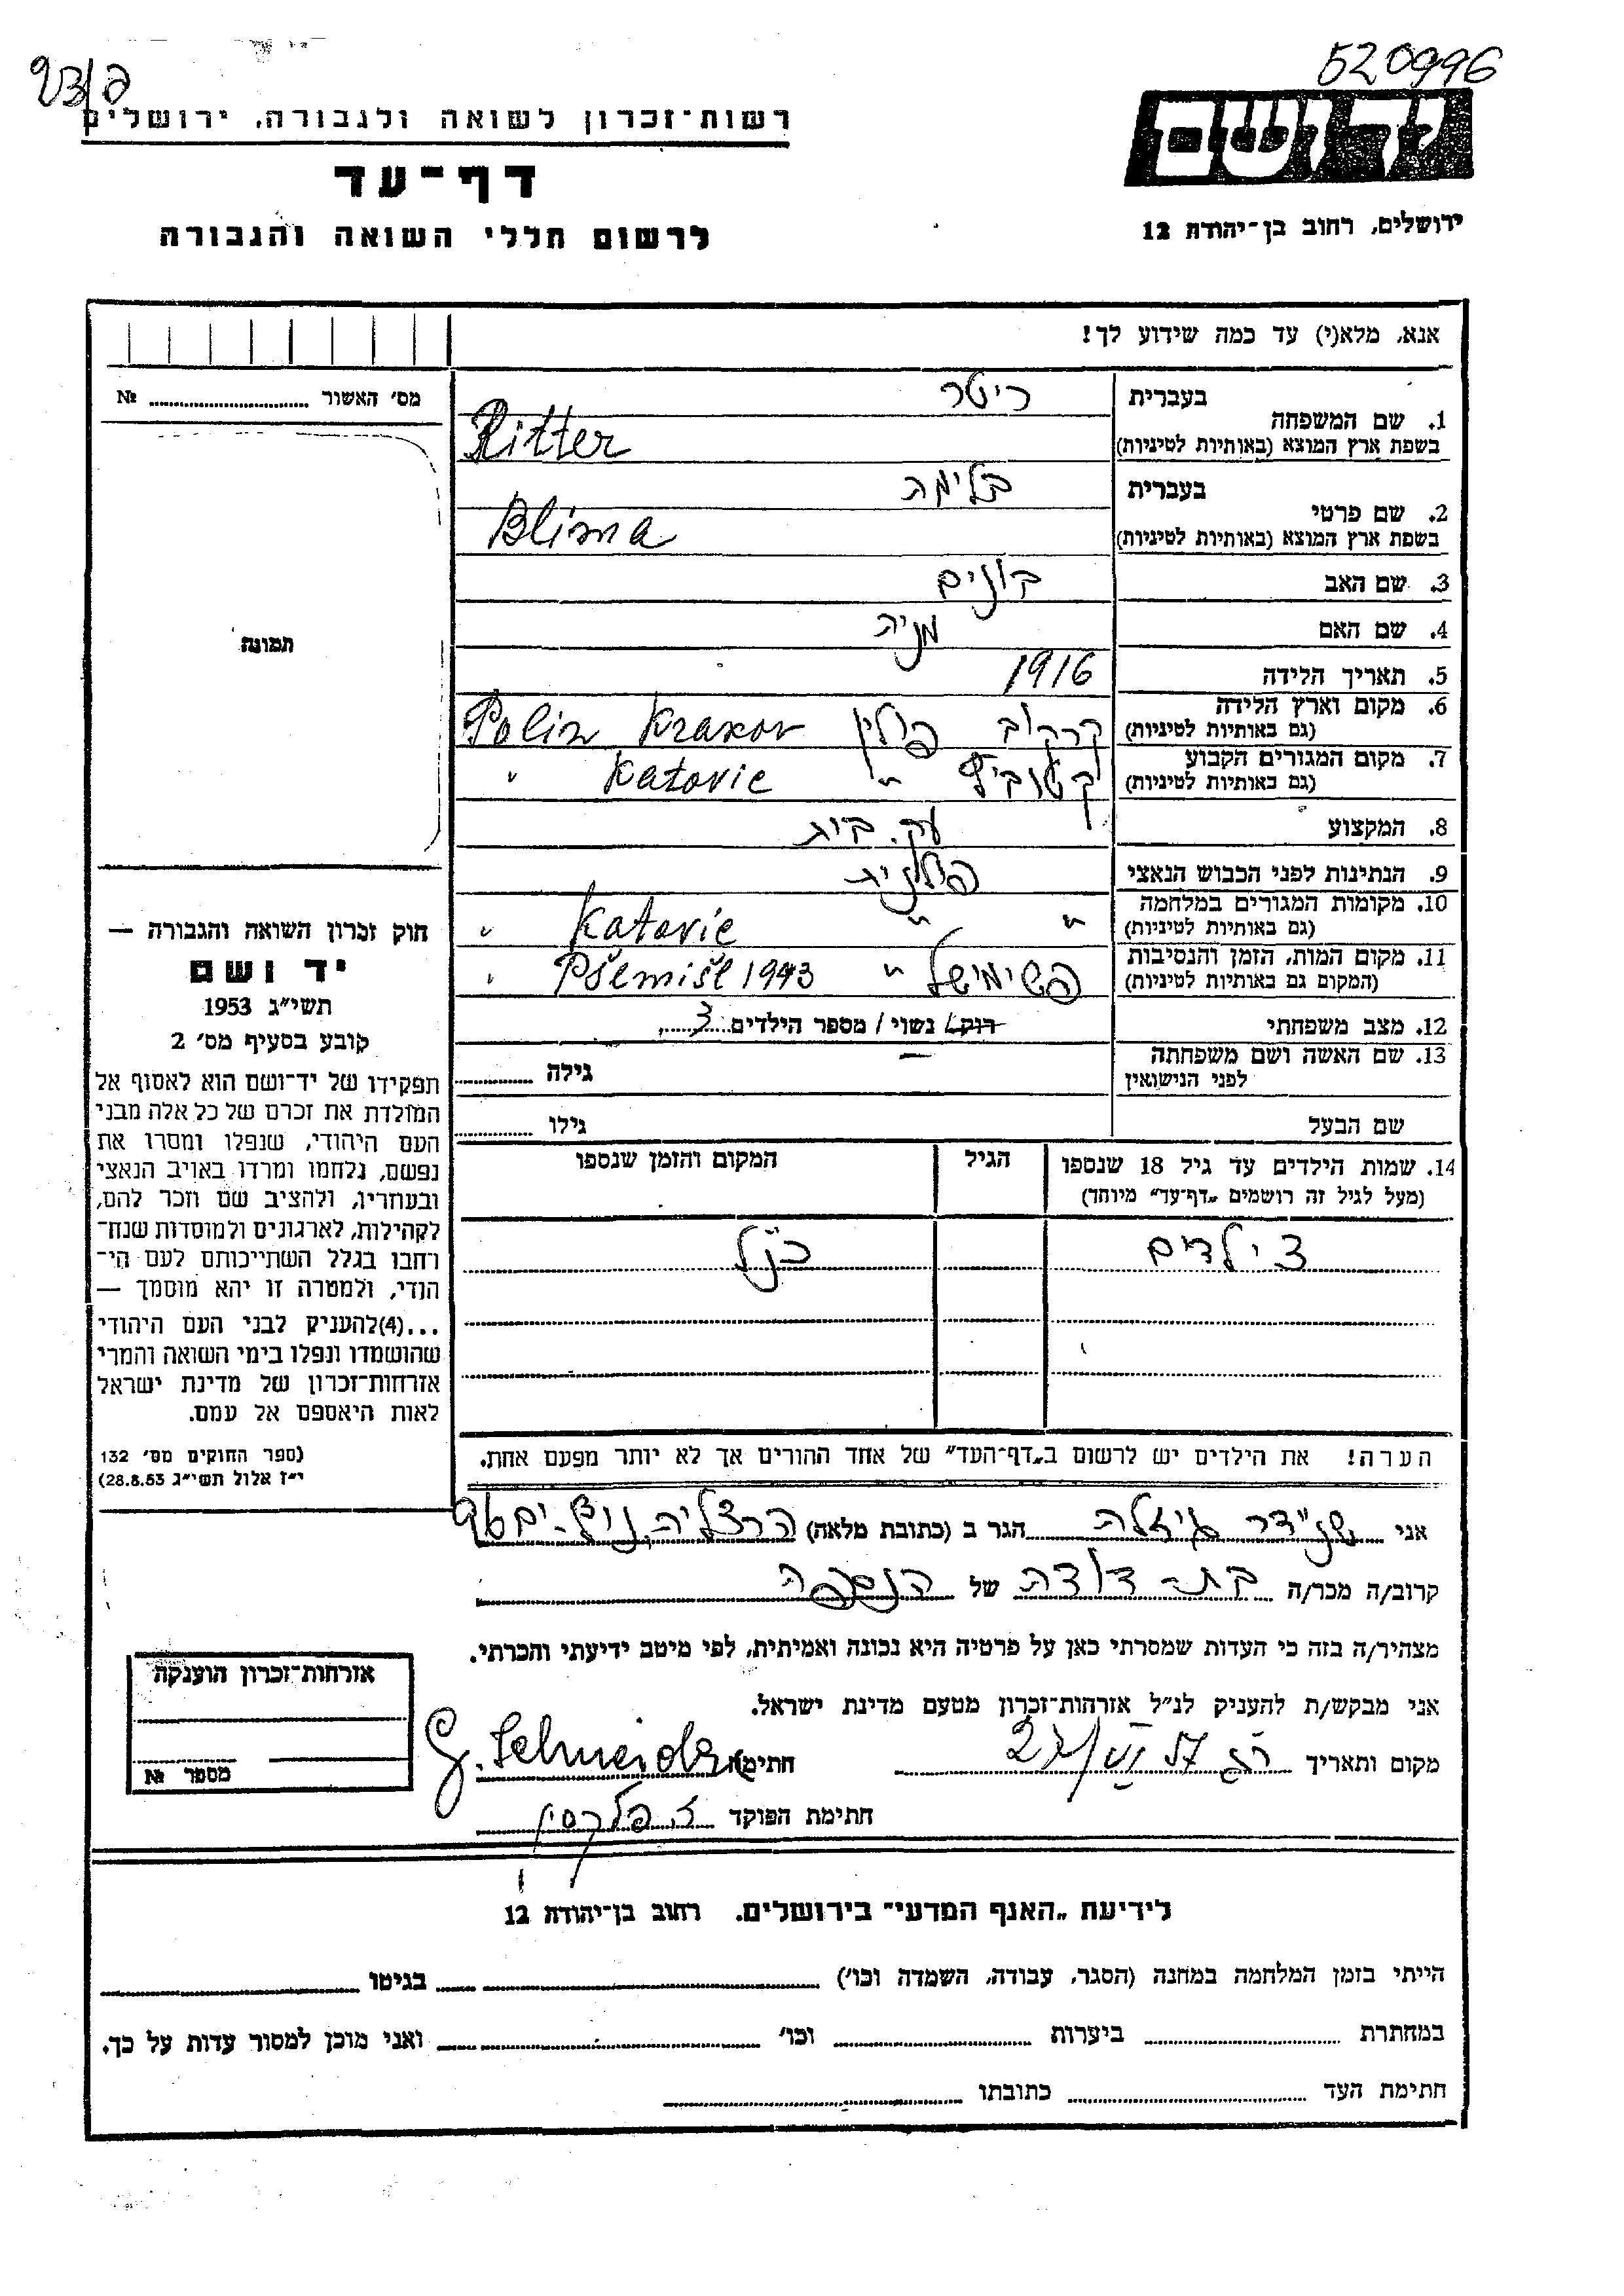 520996
רשות־זכרון לשואה ולגבורה, ירושלים
יד ושם
דף־עד
לרשום חללי השואה והגבורה
ירושלים, רחוב בן־יהודה 12
אנא, מלא(י) עד כמה שידוע לך!
מס׳ האשור ........ №
תמונה
חוק זכרון השואה והגבורה —
יד ושם
תשי״ג 1953
קובע בסעיף מס׳ 2
תפקידו של יד־ושם הוא לאסוף אל
המולדת את זכרם של כל אלה מבני
העם היהודי, שנפלו ומסרו את
נפשם, נלחמו ומרדו באויב הנאצי
ובעוזריו, ולהציב שם וזכר להם,
לקהילות, לארגונים ולמוסדות שנח־
רבו בגלל השתייכותם לעם הי־
הודי, ולמטרה זו יהא מוסמך —
...(4)להעניק לבני העם היהודי
שהושמדו ונפלו בימי השואה והמרי
אזרחות־זכרון של מדינת ישראל
לאות היאספם אל עמם.
(ספר החוקים מס׳ 132
י״ז אלול תשי״ג 28.8.53)
בעברית ריטר
1. שם המשפחה
בשפת ארץ המוצא (באותיות לטיניות) Ritter
בעברית בלימה
2. שם פרטי
בשפת ארץ המוצא (באותיות לטיניות) Blima
3. שם האב בונים
4. שם האם מניה
5. תאריך הלידה 1916
6. מקום וארץ הלידה קרקוב פולין Krakov Polin
(גם באותיות לטיניות)
7. מקום המגורים הקבוע קטוביץ " Katovic "
(גם באותיות לטיניות)
8. המקצוע עק. בית
9. הנתינות לפני הכבוש הנאצי פולנית
10. מקומות המגורים במלחמה " " Katovic "
(גם באותיות לטיניות)
11. מקום המות, הזמן והנסיבות פשימישל " Pšemišl 1943 "
(המקום גם באותיות לטיניות)
12. מצב משפחתי רוק/ נשוי / מספר הילדים 3
13. שם האשה ושם משפחתה — גילה
לפני הנישואין
שם הבעל גילו
14. שמות הילדים עד גיל 18 שנספו הגיל המקום והזמן שנספו
(מעל לגיל זה רושמים „דף־עד״ מיוחד)
3 ילדים כנ״ל
הערה! את הילדים יש לרשום ב„דף־העד״ של אחד ההורים אך לא יותר מפעם אחת.
אני שנידר גיזלה הגר ב (כתובת מלאה) הרצליה
קרוב/ה מכר/ה בת-דודה של הנספה
מצהיר/ה בזה כי העדות שמסרתי כאן על פרטיה היא נכונה ואמיתית, לפי מיטב ידיעתי והכרתי.
אני מבקש/ת להעניק לנ״ל אזרחות־זכרון מטעם מדינת ישראל.
מקום ותאריך 27/VI 57 חתימה G. Schneider
חתימת הפוקד
אזרחות־זכרון הוענקה
מספר №
לידיעת „האגף המדעי״ בירושלים. רחוב בן־יהודה 12
הייתי בזמן המלחמה במחנה (הסגר, עבודה, השמדה וכו׳) בגיטו
במחתרת ביערות וכו׳ ואני מוכן למסור עדות על כך.
חתימת העד כתובתו